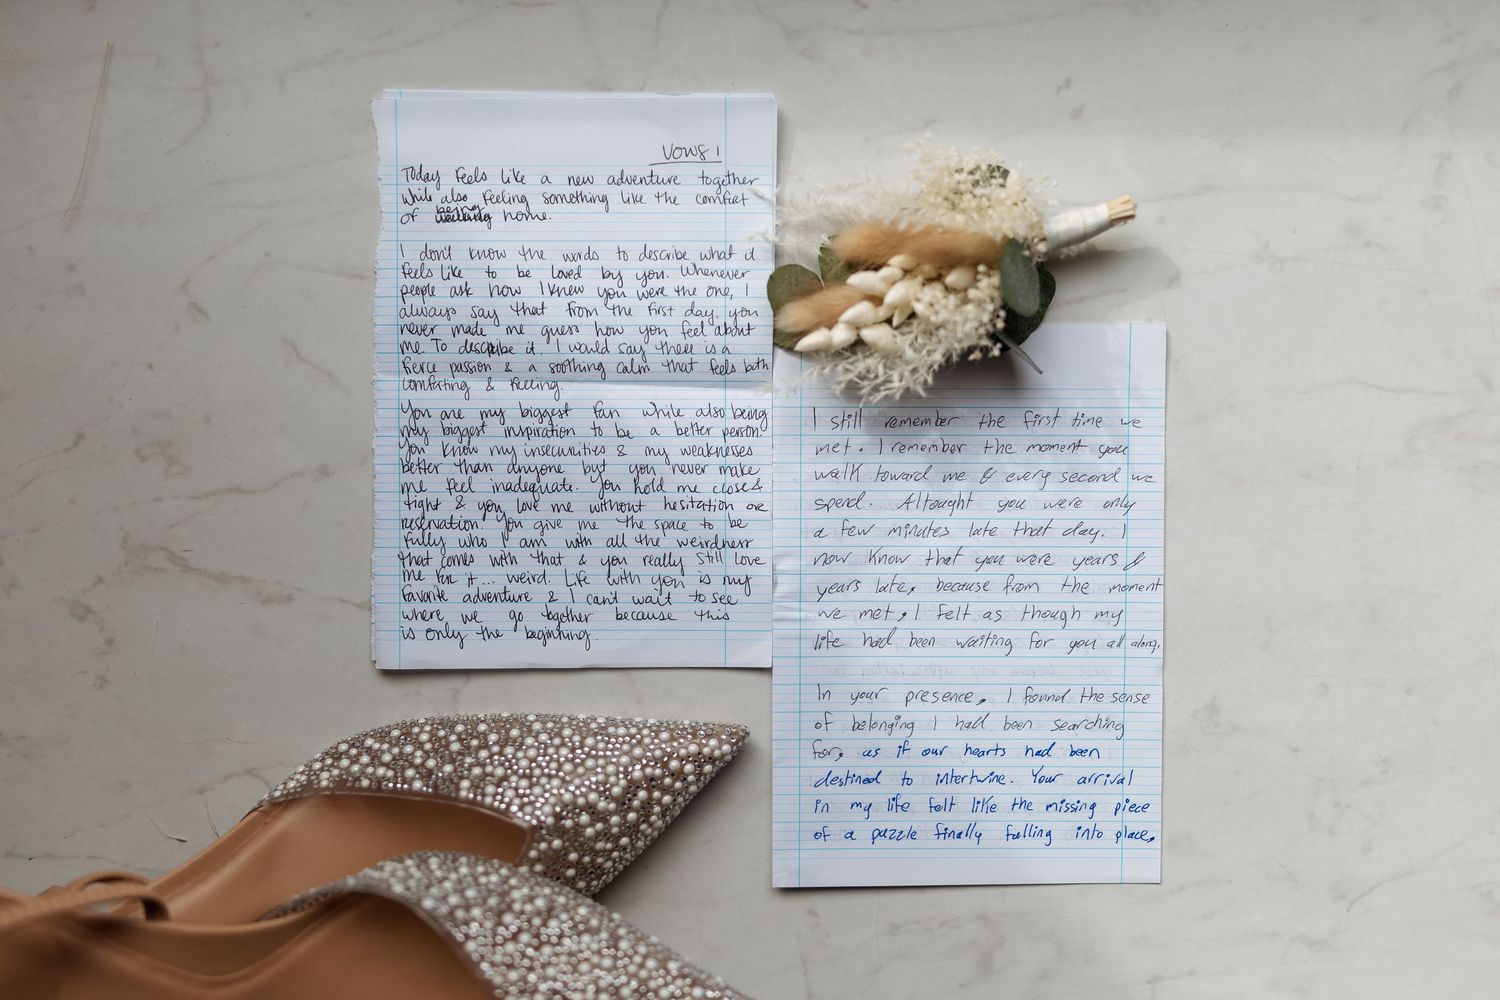 VOWS 1
Today feels like a new adventure together
while also feeling something like the comfort
of being home.
I don't know the words to describe what it
feels like to be loved by you. Whenever
people ask how I knew you were the one, I
always say that from the first day, you
never made me guess how you feel about
me. To describe it, I would say there is a
fierce passion & a soothing calm that feels both
comforting & freeing.
You are my biggest fan while also being
my biggest inspiration to be a better person.
You know my insecurities & my weaknesses
better than anyone but you never make
me feel inadequate. You hold me close &
tight & you love me without hesitation or
reservation. You give me the space to be
fully who I am with all the weirdness
that comes with that & you really still love
me for it... weird. Life with you is my
favorite adventure & I can't wait to see
where we go together because this
is only the beginning.
I still remember the first time we
met. I remember the moment you
walk toward me & every second we
spend. Altought you were only
a few minutes late that day. I
now know that you were years &
years late, because from the moment
we met, I felt as though my
life had been waiting for you all along.
In your presence, I found the sense
of belonging I had been searching
for, as if our hearts had been
destined to intertwine. Your arrival
in my life felt like the missing piece
of a puzzle finally falling into place,